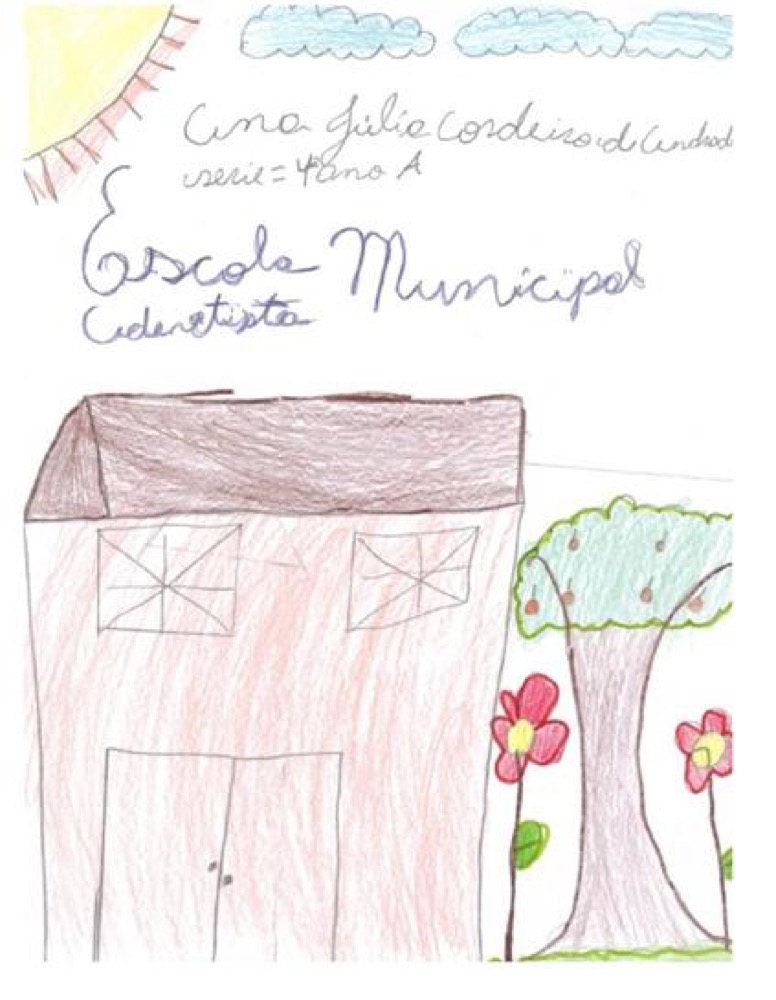 Ana Júlia Cordeiro de Andrad
serie = 4º ano A
Escola Municipal
Adventista